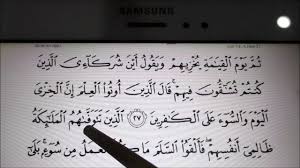 ثُمَّ يَوْمَ الْقِيٰمَةِ يُخْزِيهِمْ وَيَقُولُ أَيْنَ شُرَكَآءِىَ الَّذِينَ
كُنتُمْ تُشَٰٓقُّونَ فِيهِمْ قَالَ الَّذِينَ أُوتُوا الْعِلْمَ إِنَّ الْخِزْىَ
الْيَوْمَ وَالسُّوٓءَ عَلَى الْكٰفِرِينَ ﴿٢٧﴾ الَّذِينَ تَتَوَفّٰىهُمُ الْمَلٰٓئِكَةُ
ظَالِمِىٓ أَنفُسِهِمْ فَأَلْقَوُا السَّلَمَ مَا كُنَّا نَعْمَلُ مِن سُوٓءٍ بَلَىٰٓ